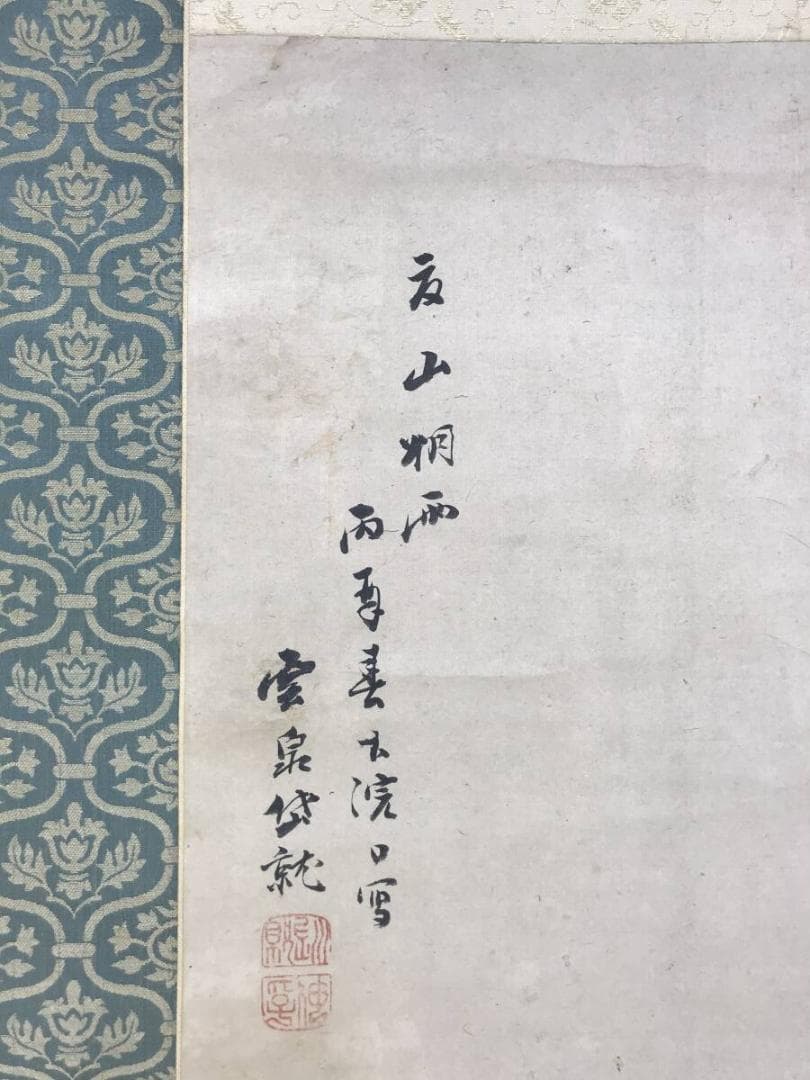 夏山烟雨
丙寅春上浣日写
雲泉岱就